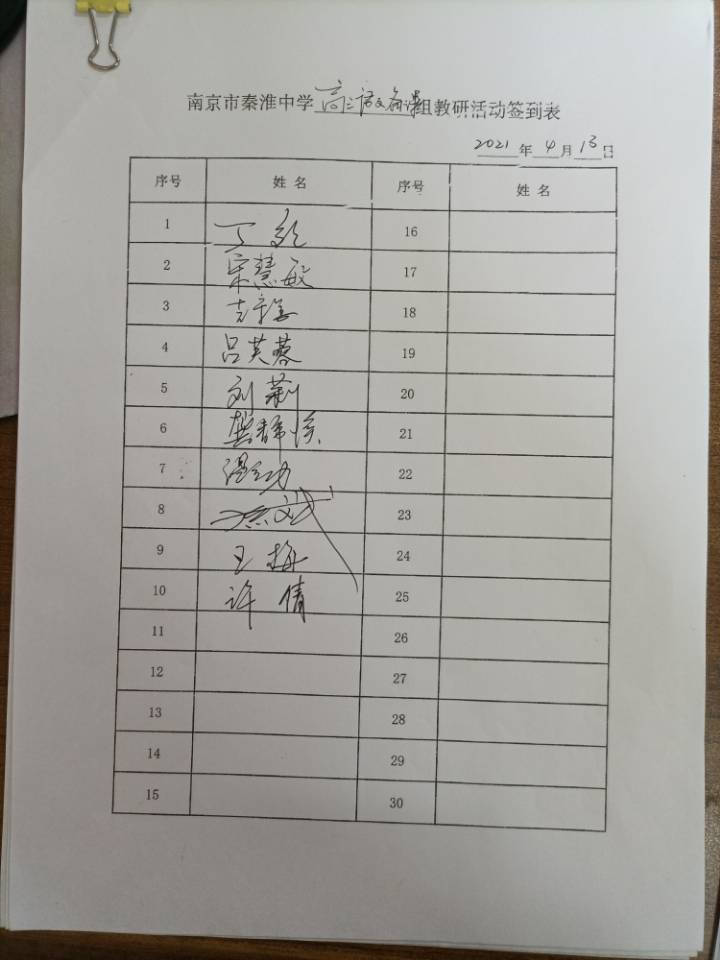 南京市秦淮中学高三语文备课组教研活动签到表
2021年4月13日
序号 姓名 序号 姓名
1 丁 16
2 宋慧敏 17
3 吉 18
4 吕芙蓉 19
5 刘莉 20
6 龚 21
7 温 22
8 23
9 王梅 24
10 许倩 25
11 26
12 27
13 28
14 29
15 30